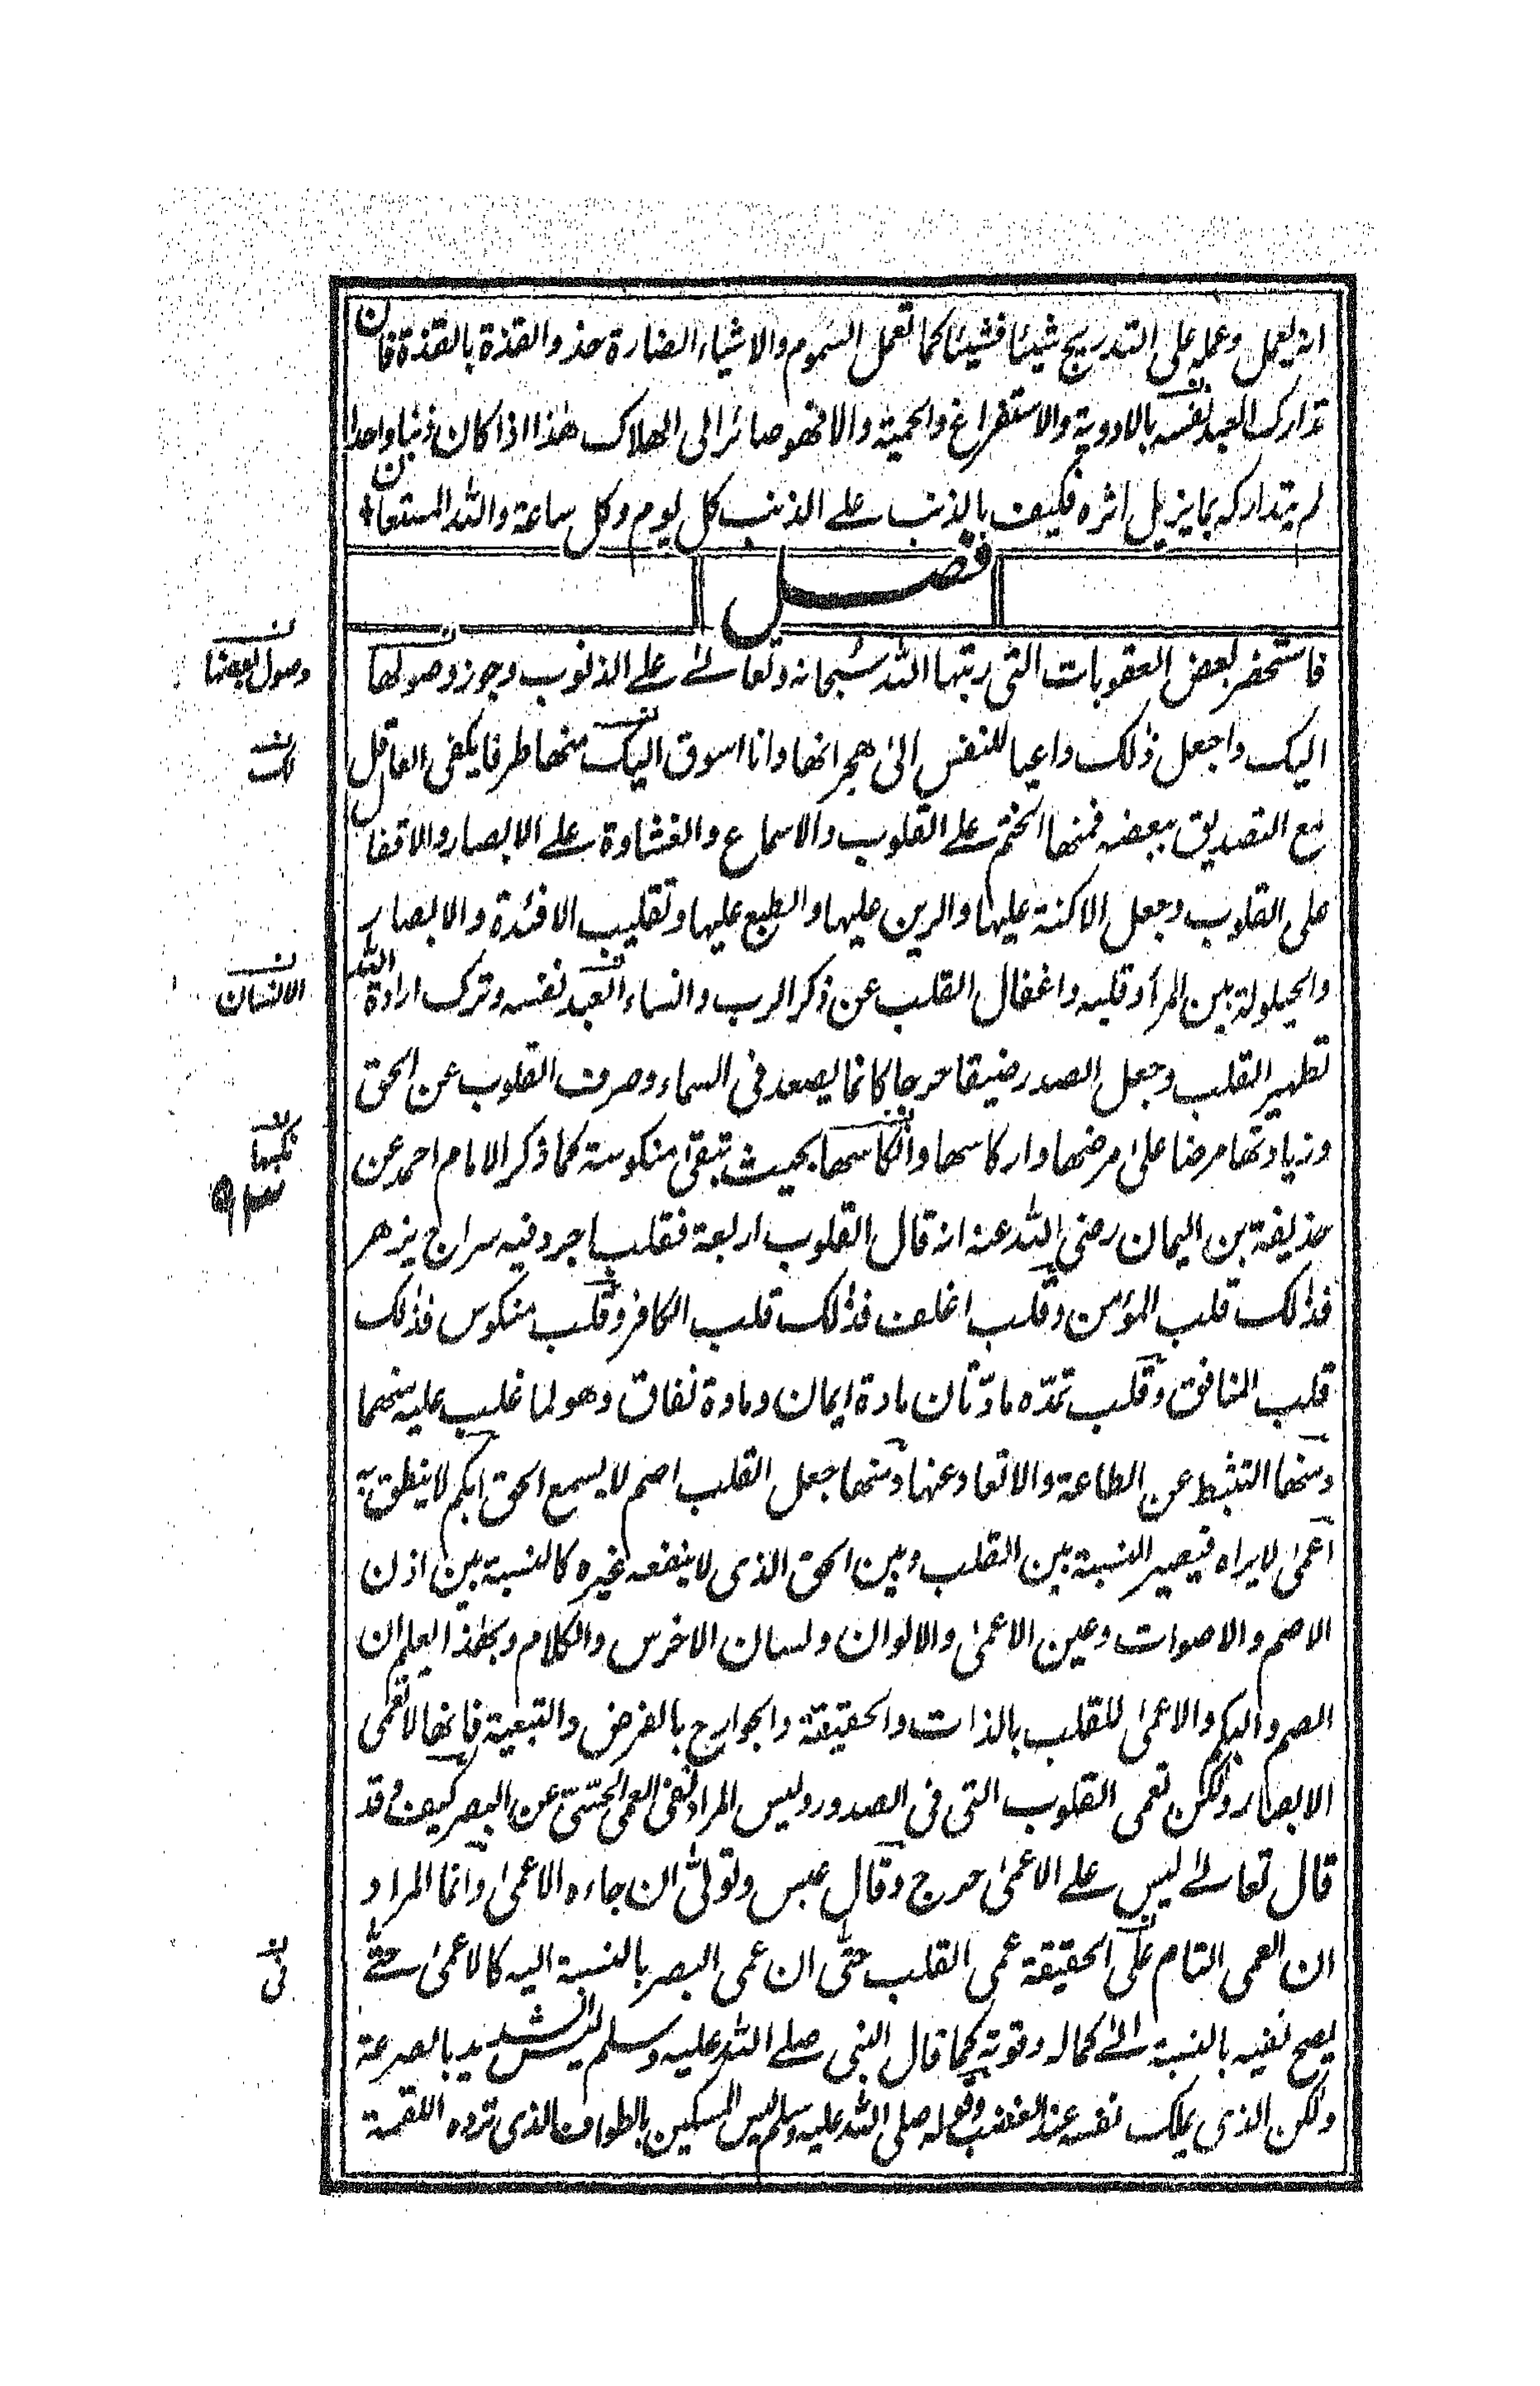 انه يعمل وعمله على التدريج شيئا فشيئا كما تعمل السموم والاشياء الضارة حذو القذة بالقذة فان
تدارك العبد نفسه بالادوية والاستفراغ والحمية والا فهو صائر الى الهلاك هذا اذا كان ذنبا واحدا
لم يتداركه بما يزيل اثره فكيف بالذنب على الذنب كل يوم وكل ساعة والله المستعان
فصل
فاستحضر بعض العقوبات التى رتبها الله سبحانه وتعالى على الذنوب وجوز وصولها
وصول بعضها
اليك واجعل ذلك داعيا للنفس الى هجرانها وانا اسوق اليك منها طرفا يكفى العاقل
لك
مع التصديق ببعضه فمنها الختم على القلوب والاسماع والغشاوة على الابصار والاقفال
على القلوب وجعل الاكنة عليها والرين عليها والطبع عليها وتقليب الافئدة والابصار
والحيلولة بين المرأ وقلبه واغفال القلب عن ذكر الرب وانساء العبد نفسه وترك ارادة الله
الانسان
تطهير القلب وجعل الصدر ضيقا حرجا كانما يصعد فى السماء وصرف القلوب عن الحق
وزيادتها مرضا على مرضها واركاسها وانكاسها بحيث تبقى منكوسة كما ذكر الامام احمد عن
نكبها
حذيفة بن اليمان رضى الله عنه انه قال القلوب اربعة فقلب اجرد فيه سراج يزهر
فذلك قلب المؤمن وقلب اغلف فذلك قلب الكافر وقلب منكوس فذلك
قلب المنافق وقلب تمدّه مادّتان مادة ايمان ومادة نفاق وهو لما غلب عليه منهما
ومنها التثبط عن الطاعة والاتعاد عنها ومنها جعل القلب اصم لا يسمع الحق ابكم لا ينطق به
اعمى لا يراه فيصير النسبة بين القلب وبين الحق الذى لا ينفعه غيره كالنسبة بين اذن
الاصم والاصوات وعين الاعمى والالوان ولسان الاخرس والكلام وبهذا يعلم ان
الصم والبكم والاعمى للقلب بالذات والحقيقة والجوارح بالفرض والتبعية فانها لا تعمى
الابصار ولكن تعمى القلوب التى فى الصدور وليس المراد نفى العمى الحسّىّ عن البصر كيف وقد
قال تعالى ليس على الاعمى حرج وقال عبس وتولى ان جاءه الاعمى وانما المراد
ان العمى التام على الحقيقة عمى القلب حتى ان عمى البصر بالنسبة اليه كالاعمى حتى
فى
يصح نفيه بالنسبة الى كماله وقوته كما قال النبى صلى الله عليه وسلم ليس الشديد بالصرعة
ولكن الذى يملك نفسه عند الغضب وقوله صلى الله عليه وسلم ليس المسكين بالطواف الذى ترده اللقمة